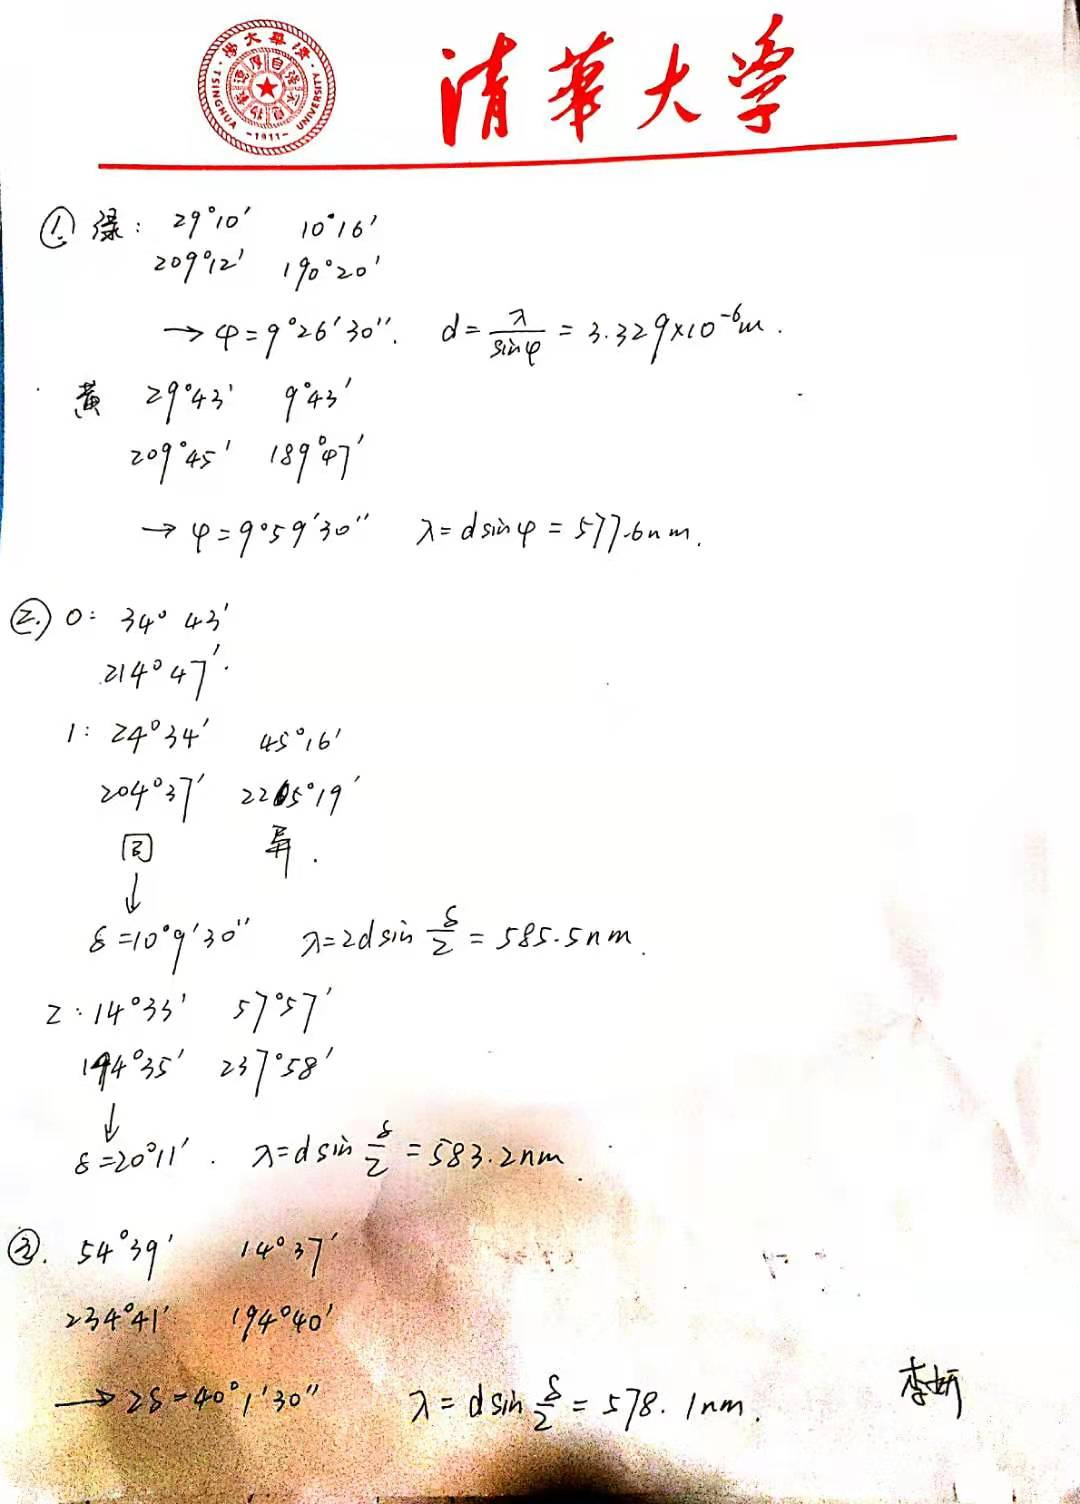 清華大学
TSINGHUA UNIVERSITY
-1911-
① 绿: 29°10′ 10°16′
209°12′ 190°20′
→ φ=9°26′30″. d=λ/sinφ = 3.329×10⁻⁶m.
黄 29°43′ 9°43′
209°45′ 189°47′
→ φ=9°59′30″ λ=dsinφ=577.6nm.
②. 0: 34°43′
214°47′.
1: 24°34′ 45°16′
204°37′ 225°19′
同 异.
↓
δ=10°9′30″ λ=2dsin δ/2 = 585.5nm.
2: 14°33′ 57°57′
194°35′ 237°58′
↓
δ=20°11′. λ=dsin δ/2 = 583.2nm.
③. 54°39′ 14°37′
234°41′ 194°40′
→ 2δ=40°1′30″ λ=dsin δ/2 = 578.1nm.
李妍